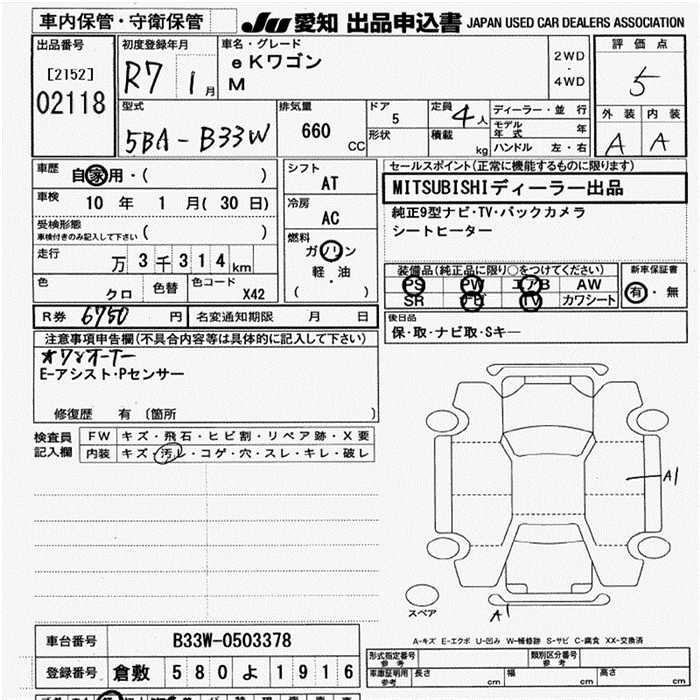 車内保管・守衛保管
JU 愛知 出品申込書 JAPAN USED CAR DEALERS ASSOCIATION
出品番号
[2152]
02118
初度登録年月
R7 1月
車名・グレード
eKワゴン
M
2WD
・
4WD
評価点
5
外装 内装
A A
型式
5BA-B33W
排気量
660 CC
ドア
5
形状
定員 4人
積載 kg
ディーラー・並行
モデル年式 年
ハンドル 左・右
車歴 自家用・( )
車検 10年 1月(30日)
受検形態
車検付きのみ記入して下さい ( )
走行
万3千314km
色
クロ
色替
色コード
X42
シフト
AT
冷房
AC
燃料
ガソリン
軽・油
( )
セールスポイント(正常に機能するものに限ります)
MITSUBISHIディーラー出品
純正9型ナビ・TV・バックカメラ
シートヒーター
装備品(純正品に限り○をつけてください)
PS PW エアB AW
SR ナビ TV カワシート
新車保証書
有・無
R券 6750円 名変通知期限 月 日
後日品
保・取・ナビ取・Sキー
注意事項申告欄(不具合内容等は具体的に記入して下さい)
*ワンオーナー
E-アシスト・Pセンサー
修復歴 有 (箇所 )
検査員
記入欄
FW キズ・飛石・ヒビ割・リペア跡・X要
内装 キズ・汚レ・コゲ・穴・スレ・キレ・破レ
A1
スペア
A1
A-キズ E-エクボ U-凹み W-補修跡 S-サビ C-腐食 XX-交換済
車台番号 B33W-0503378
登録番号 倉敷 580 よ 1916
形式指定番号
参考
類別区分番号
参考
車庫証明用
参考
長さ cm 幅 cm 高さ cm